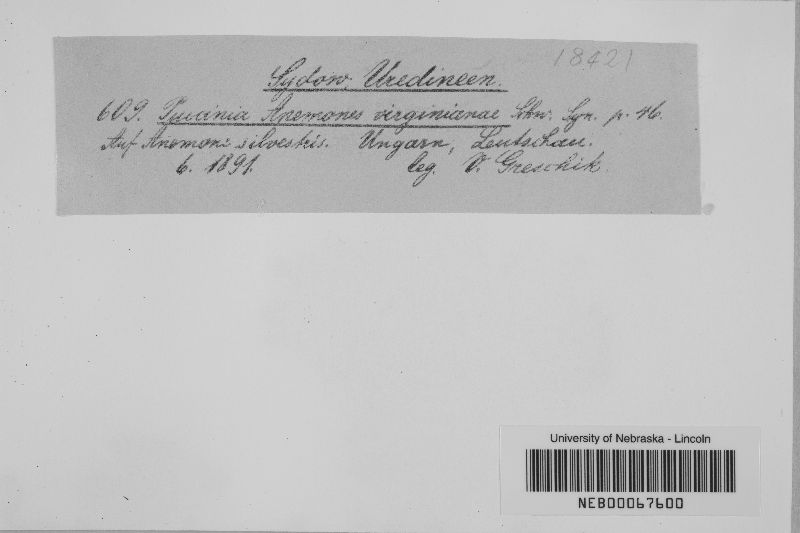 18421
Sydow, Uredineen.
609. Puccinia Anemones virginianae Schw. Syn. p. 46.
Auf Anemone silvestris. Ungarn, Leutschau.
6. 1891. leg. V. Greschik.
University of Nebraska - Lincoln
NEB00067600